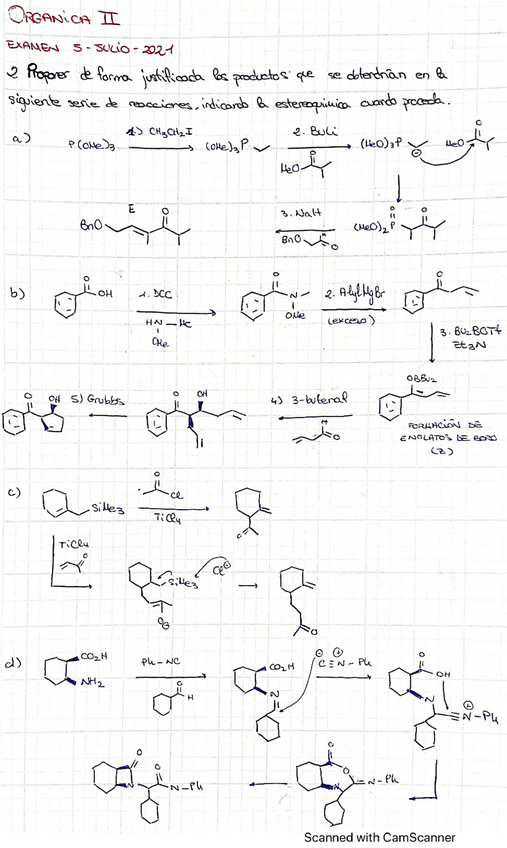 ORGANICA II
EXAMEN 5-JULIO-2021
2 Proponer de forma justificada los productos que se obtendrían en la
siguiente serie de reacciones, indicando la estereoquímica cuando proceda.
a)
P(OMe)3
1) CH3CH2I
(OMe)3P
2. BuLi
MeO
O
(MeO)3P
⊖
MeO
O
(MeO)2P
O
O
3. NaH
BnO
H
O
BnO
E
O
b)
O
OH
1. DCC
HN-Me
OMe
O
N
OMe
2. AlylMgBr
(exceso)
O
3. Bu2BOTf
Et3N
OBBu2
FORMACIÓN DE
ENOLATOS DE BORO
(Z)
4) 3-butenal
H
O
O
OH
5) Grubbs
O
OH
c)
SiMe3
O
Cl
TiCl4
O
TiCl4
O
SiMe3
Cl⊖
O
d)
CO2H
NH2
Ph-NC
O
H
CO2H
N
⊖
C≡N-Ph
⊕
O
OH
N
≡N-Ph
⊕
O
O
N
=N-Ph
O
N
O
N-Ph
Scanned with CamScanner